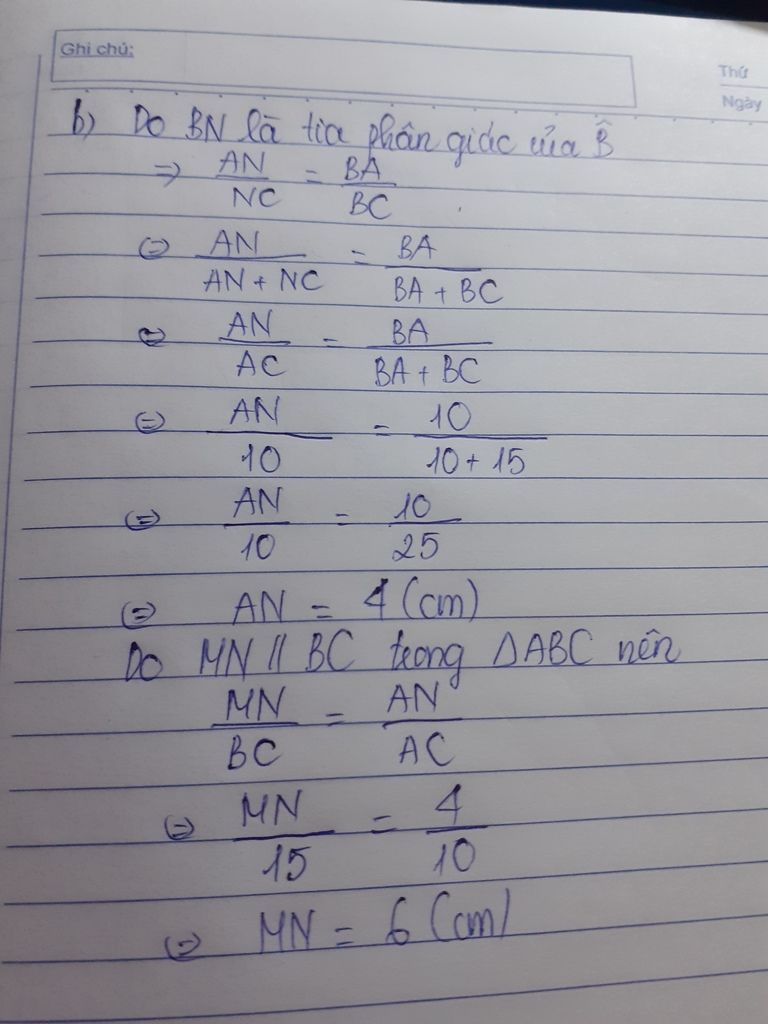 Ghi chú:
Thứ
Ngày
b) Do BN là tia phân giác của B̂
=> AN/NC = BA/BC
<=> AN/(AN + NC) = BA/(BA + BC)
<=> AN/AC = BA/(BA + BC)
<=> AN/10 = 10/(10 + 15)
<=> AN/10 = 10/25
<=> AN = 4 (cm)
Do MN // BC trong ΔABC nên
MN/BC = AN/AC
<=> MN/15 = 4/10
<=> MN = 6 (cm)